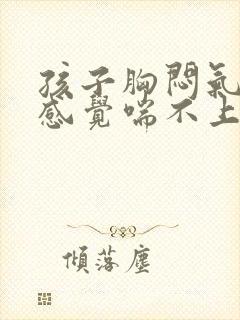 孩子胸悶氣
感覺喘不上
傾落塵